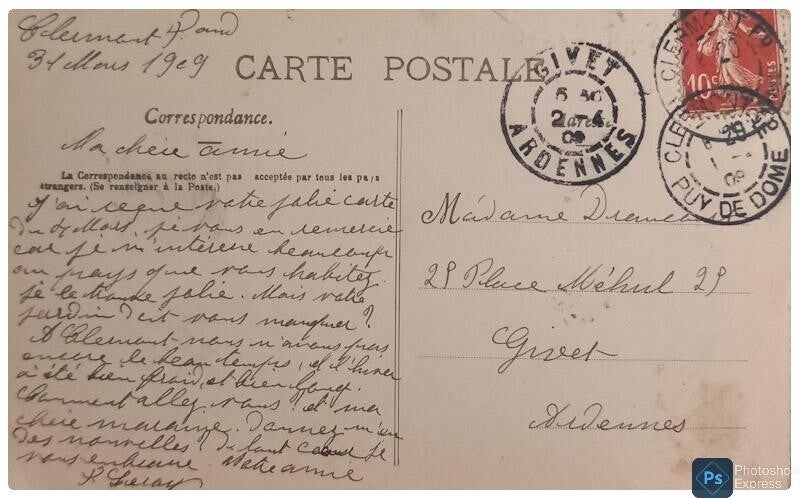 Clermont Fd
31 Mars 1909
CARTE POSTALE
Correspondance.
Ma chère amie
La Correspondance au recto n'est pas acceptée par tous les pays
étrangers. (Se renseigner à la Poste.)
J'ai reçue votre jolie carte
du Mars, je vous en remercie
car je m'intéresse beaucoup
au pays que vous habitez
je le trouve jolie. Mais votre
jardin doit vous manquer?
A Clermont nous n'avons pas
encore le beau temps, et l'hiver
a été bien froid, et bien long.
Comment allez vous? et ma
chère marraine. Donnez m'en
des nouvelles? de tout cœur je
vous embrasse. Votre amie
GIVET
2 - 4
09
ARDENNES
CLERMONT-FD
10c
POSTES
PUY. DE DOME
Madame
29 Place Méhul 29
Givet
Ardennes
Ps
Photosho
Express